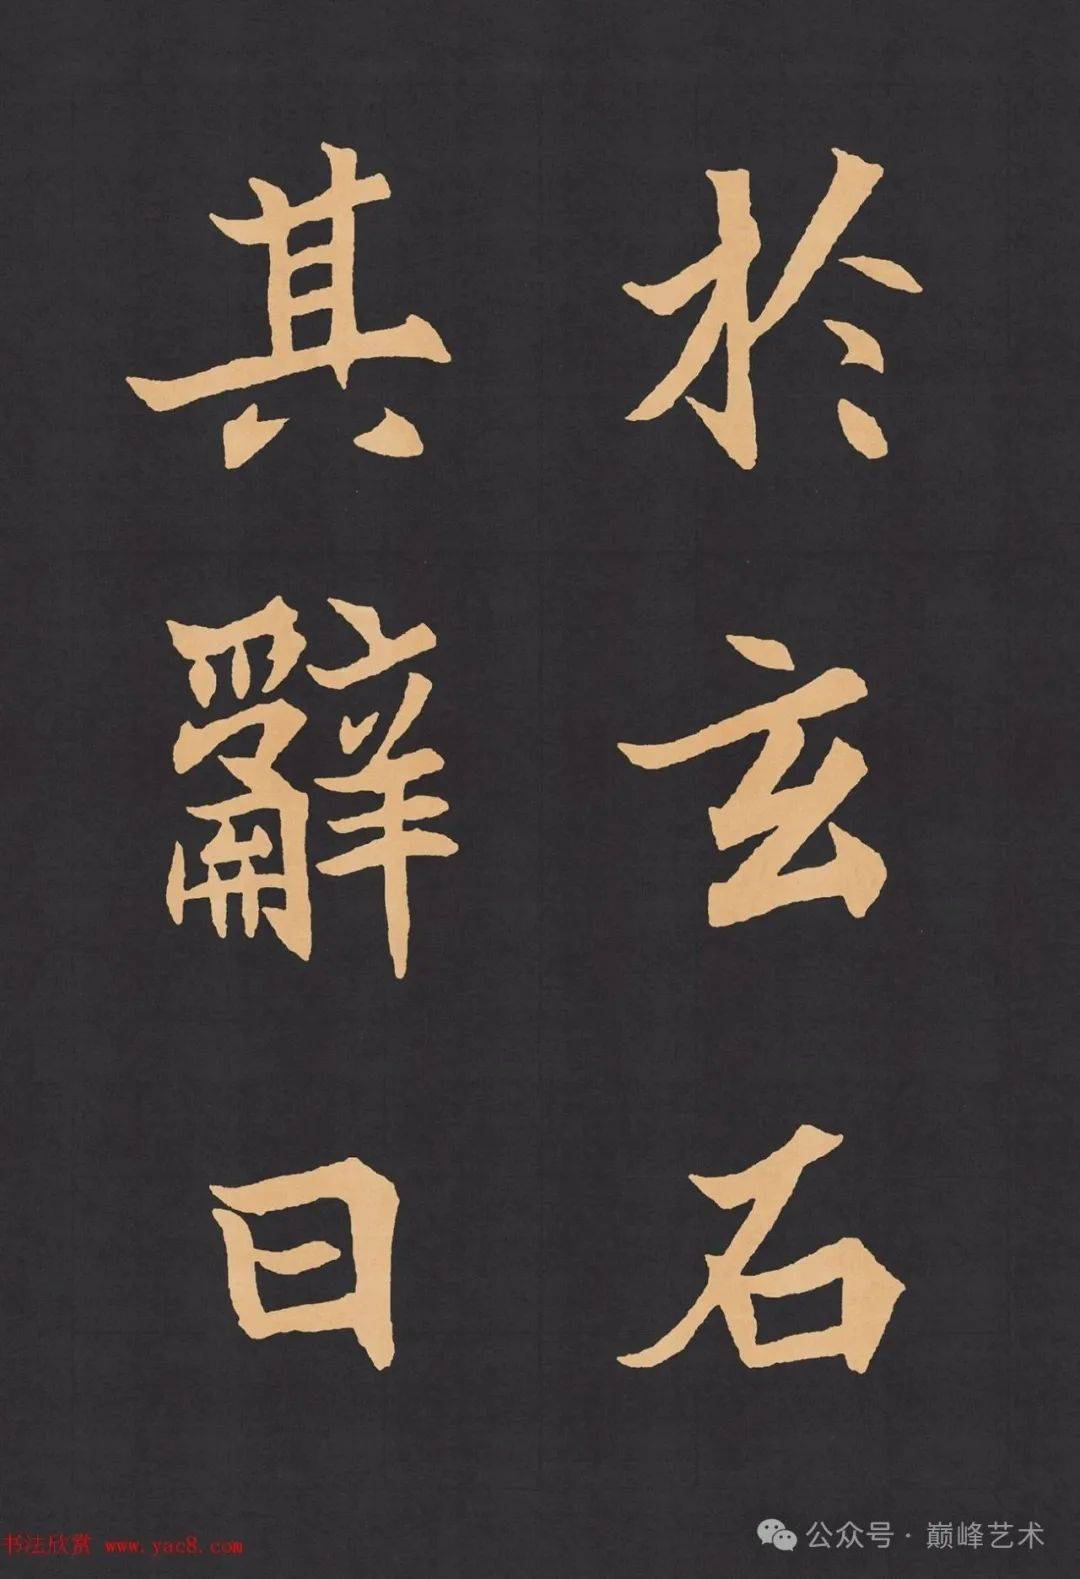 於玄石
其辭曰
书法欣赏 www.yac8.com
公众号·巅峰艺术